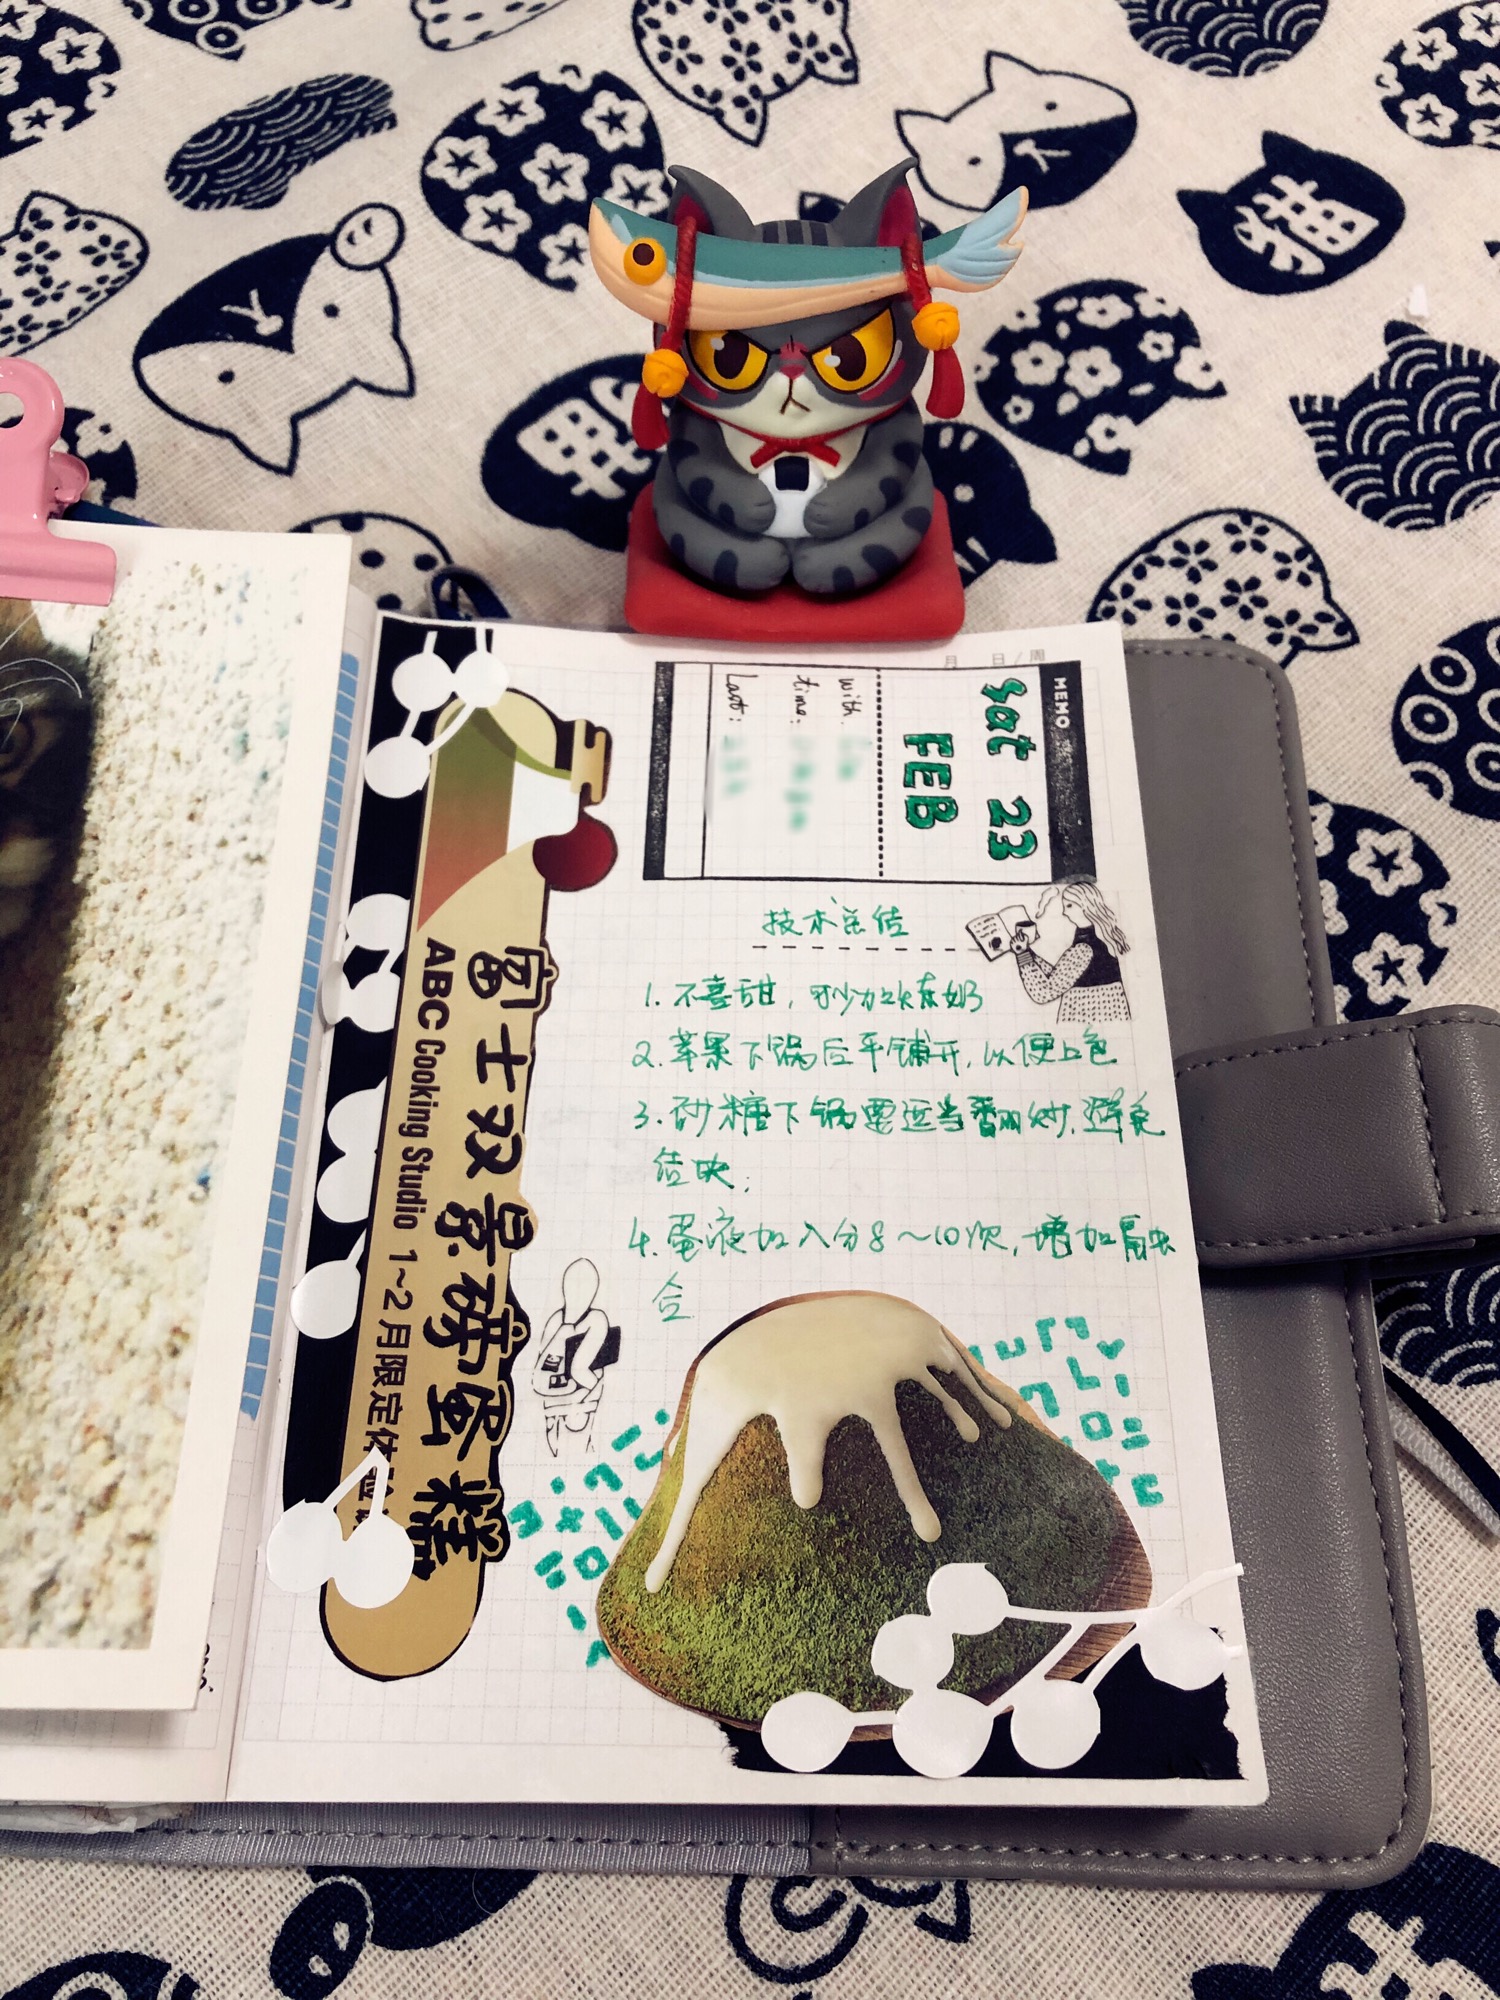 猫
月 日/周
MEMO
Sat 23
FEB
with:
time:
Last:
技术总结
1. 不喜甜，可少加炼奶
2. 苹果下锅后平铺开，以便上色
3. 砂糖下锅要适当翻炒，避免
结块；
4. 蛋液加入分8～10次，增加融
合
富士双景磅蛋糕
ABC Cooking Studio 1~2月限定体验